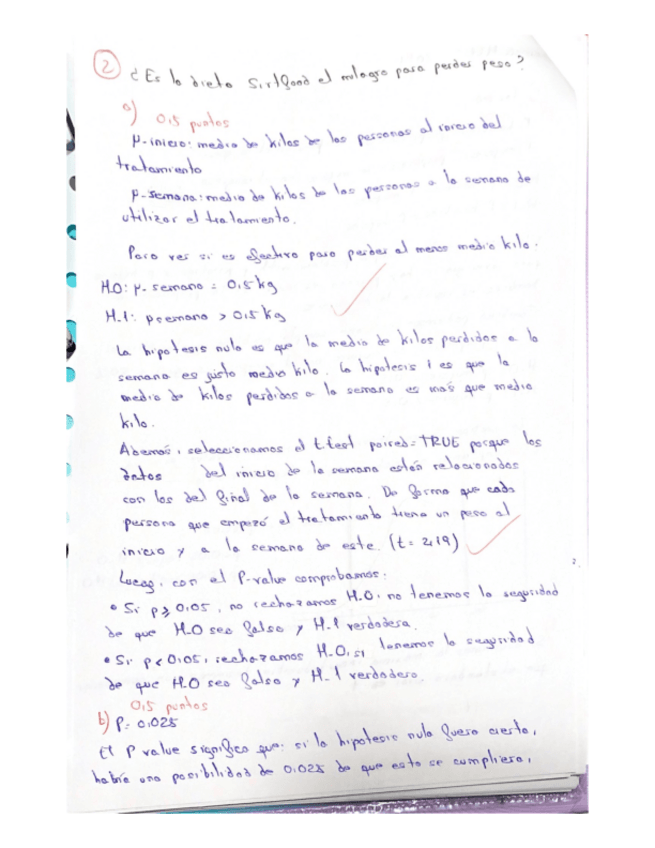 2 ¿Es la dieta Sirtfood el milagro para perder peso?
a) 0,5 puntos
μ-inicio: media de kilos de las personas al inicio del
tratamiento
μ-semana: media de kilos de las personas a la semana de
utilizar el tratamiento.
Para ver si es efectivo para perder al menos medio kilo.
H.0: μ-semana = 0,5 kg
H.1: μ semana > 0,5 kg
La hipotesis nula es que la media de kilos perdidos a la
semana es justo medio kilo. La hipotesis 1 es que la
media de kilos perdidos a la semana es más que medio
kilo.
Además, seleccionamos el t.test paired=TRUE porque los
datos del inicio de la semana están relacionados
con los del final de la semana. De forma que cada
persona que empezó el tratamiento tiene un peso al
inicio y a la semana de este. (t = 2,19)
Luego, con el P-value comprobamos:
• Si p ≥ 0,05, no rechazamos H.0, no tenemos la seguridad
de que H.0 sea falsa y H.1 verdadera.
• Si p < 0,05, rechazamos H.0, si tenemos la seguridad
de que H.0 sea falsa y H.1 verdadera.
0,5 puntos
b) P = 0,025
El P value significa que: si la hipotesis nula fuera cierta,
habría una posibilidad de 0,025 de que esto se cumpliera,